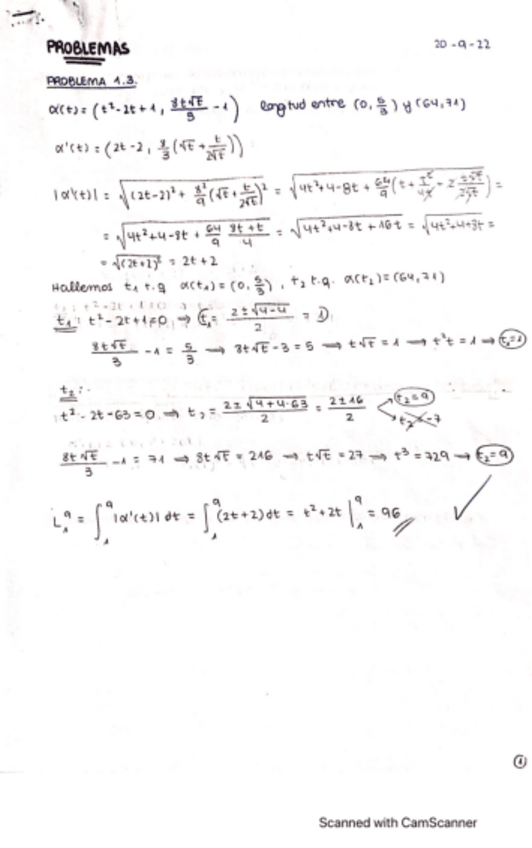 PROBLEMAS
20-9-22
PROBLEMA 1.3.
α(t) = (t²-2t+1, 8t√t/3 - 1) longitud entre (0, 5/3) y (64,71)
α'(t) = (2t-2, 8/3 (√t + t/2√t))
|α'(t)| = √((2t-2)² + 8²/9 (√t + t/2√t)²) = √(4t²+4-8t + 64/9 (t +
= √(4t²+4-8t + 64/9 · 9t+t/4) = √(4t²+4-8t+16t) = √(4t²+4+8t) =
= √((2t+2)²) = 2t+2
Hallemos t₁ t.q α(t₁) = (0, 5/3), t₂ t.q. α(t₂) = (64,71)
t₁: t²-2t+1=0 ⇒ t₁ = 2±√(4-4)/2 = 1
8t√t/3 - 1 = 5/3 → 8t√t - 3 = 5 → t√t = 1 → t²t = 1 → t₁=1
t₂:
t² - 2t - 63 = 0 ⇒ t₂ = 2±√(4+4·63)/2 = 2±16/2 t₂=9
t₂=-7
8t√t/3 - 1 = 71 ⇒ 8t√t = 216 → t√t = 27 → t³ = 729 → t₂=9
L₁⁹ = ∫₁⁹ |α'(t)| dt = ∫₁⁹ (2t+2) dt = t²+2t |₁⁹ = 96 ✓
1
Scanned with CamScanner